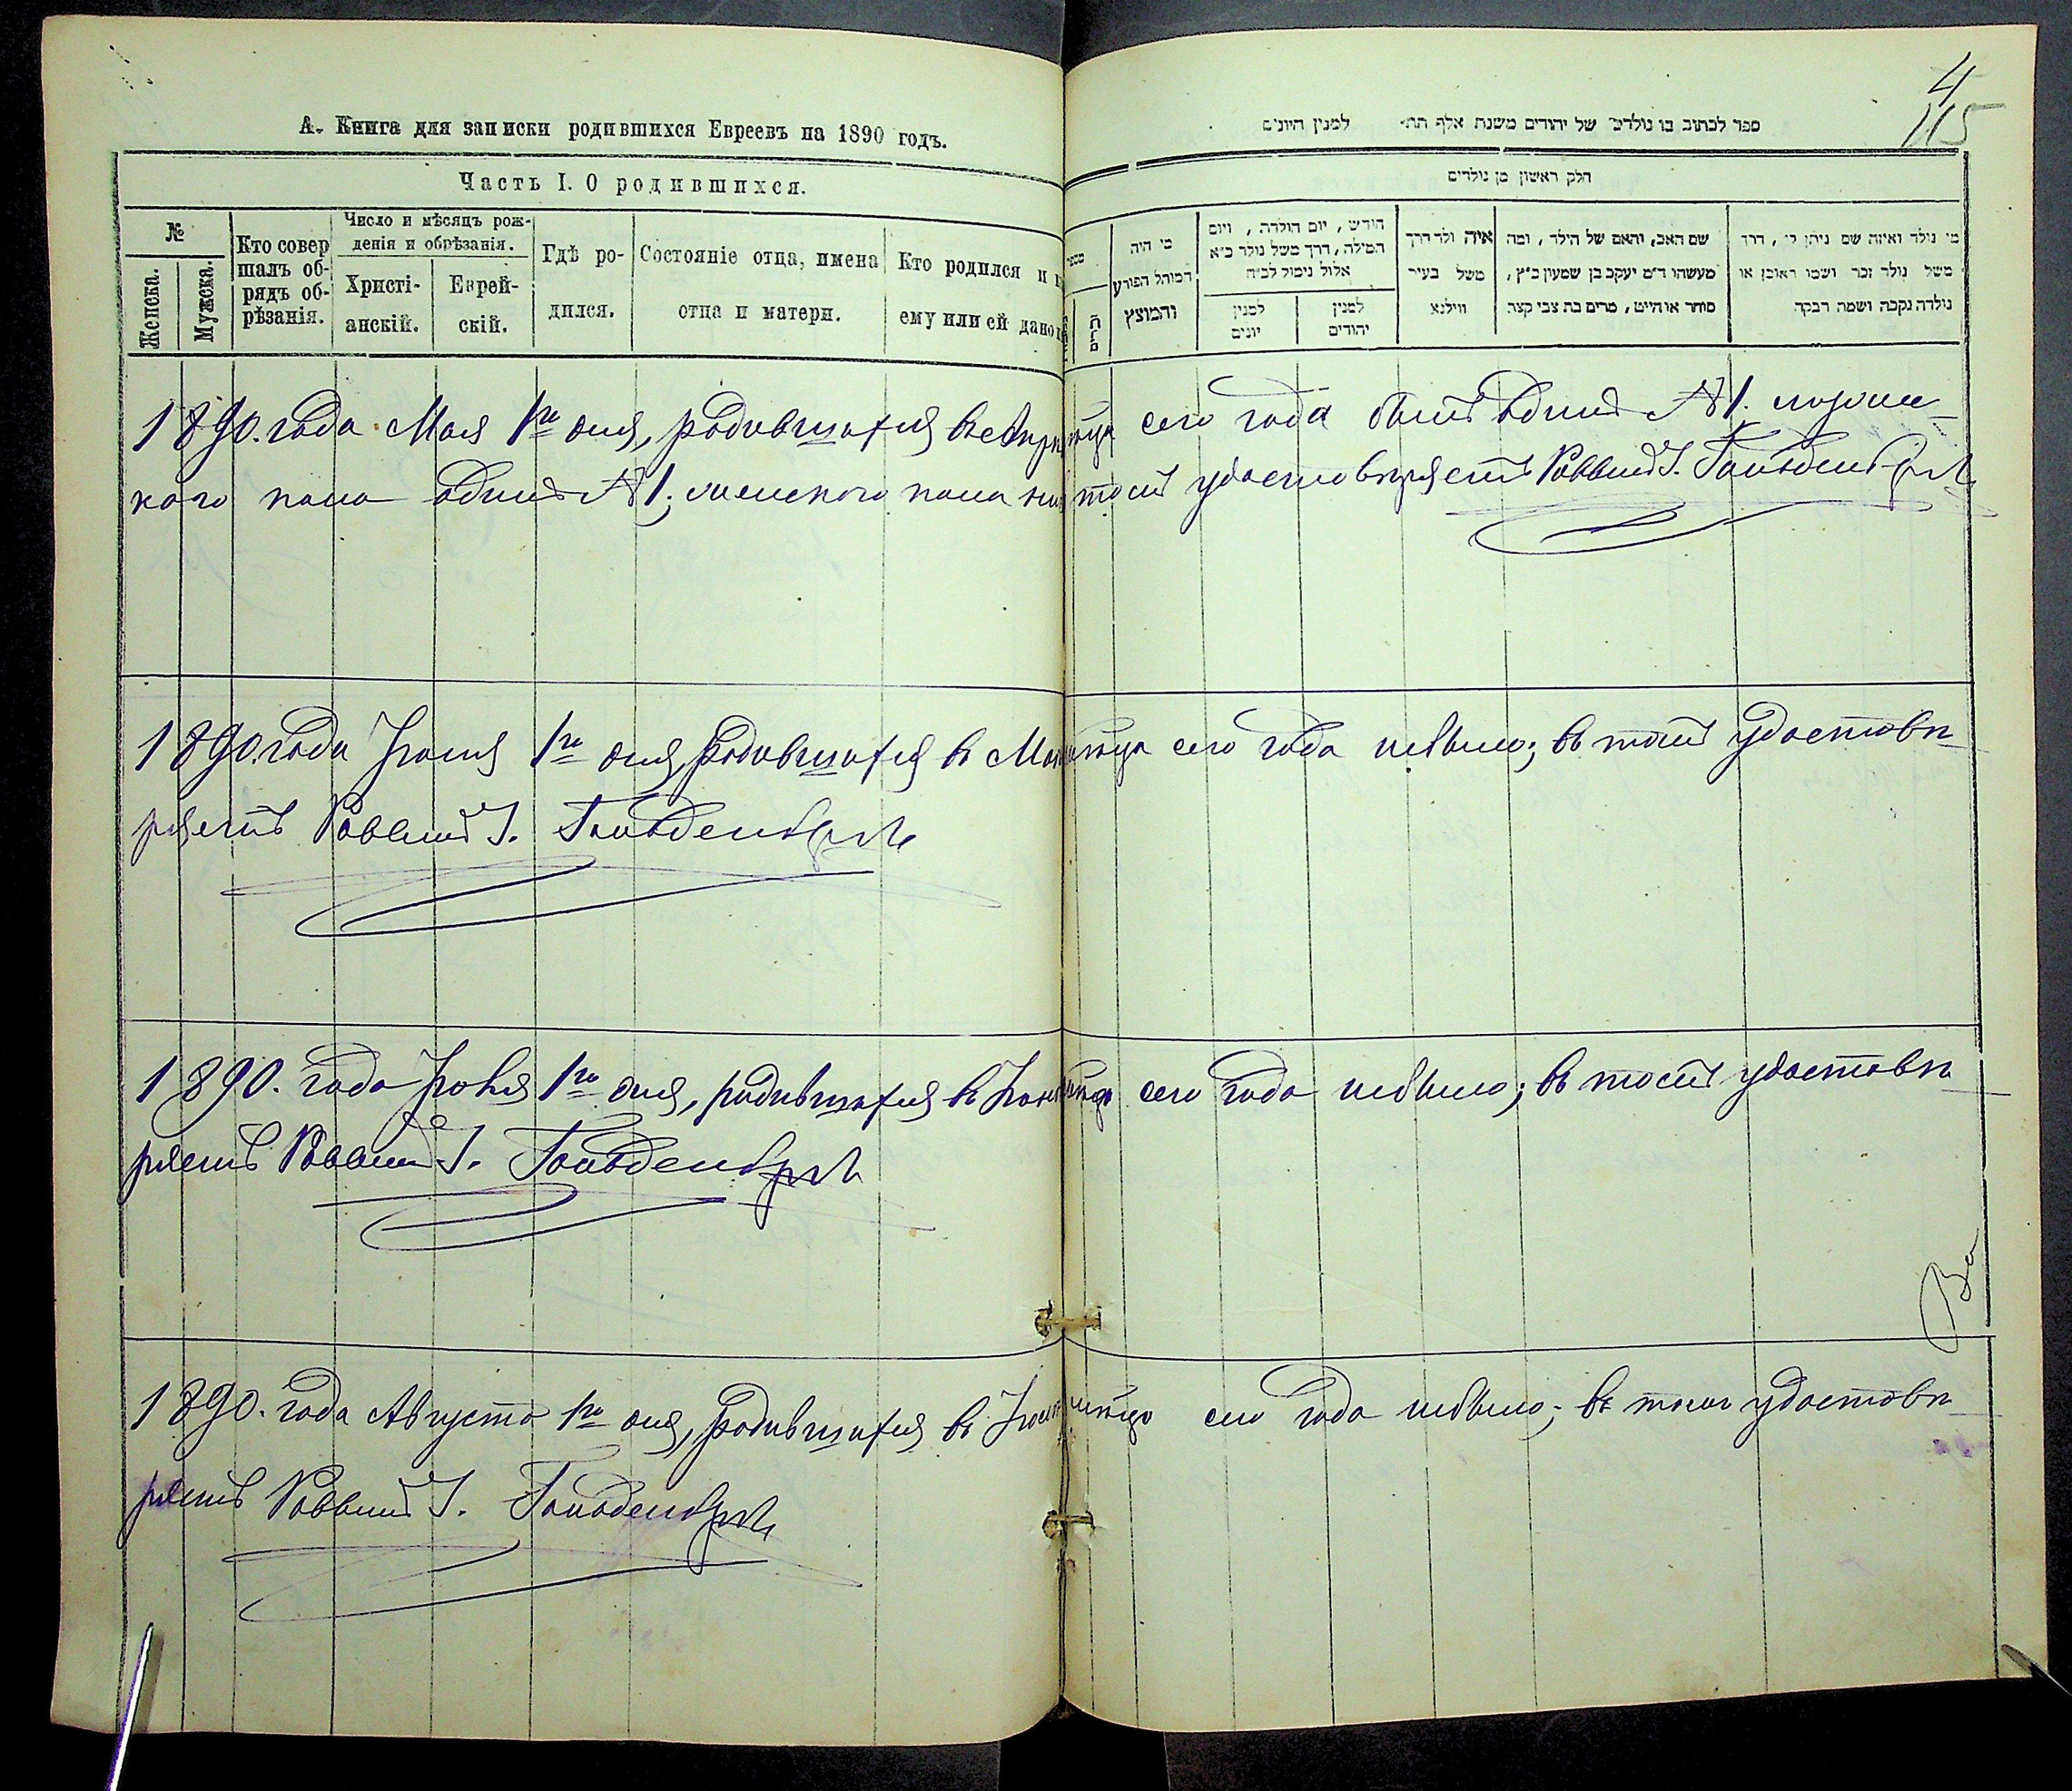 А. Книга для записки родившихся Евреевъ на 1890 годъ.
Часть I. О родившихся.
№
Женска.
Мужска.
Кто совер
шалъ об-
рядъ об-
рѣзанія.
Число и мѣсяцъ рож-
денія и обрѣзанія.
Христі-
анскій.
Еврей-
скій.
Гдѣ ро-
дился.
Состояніе отца, имена
отца и матери.
Кто родился и
ему или ей дано
4
115
ספר לכתוב בו נולדים של יהודים משנת אלף תת למנין היונים
חלק ראשון מן נולדים
מי היה
המוהל הפורע
והמוצץ
חודש, יום הולדת, ויום
המילה, דרך משל נולד כ״א
אלול נימול לכ״ח
למנין
יונים
למנין
יהודים
איה ולד דרך
משל בעיר
ווילנא
שם האב, והאם של הילד, ומה
מעשהו ד״מ יעקב בן שמעון כ״ץ,
סוחר או חייט, מרים בת צבי קצב
מי נולד ואיזה שם ניתן לו, דרך
משל נולד זכר ושמו ראובן או
נולדה נקבה ושמה רבקה
1890. года Мая 1го дня, родившихся въ Апрѣ мѣсяца сего года былъ одинъ №1. мужес-
каго пола одинъ №1; женскаго пола въ томъ удостовѣряетъ Раввинъ І. Гольденбергъ
1890. года Іюня 1го дня, родившихся в Маѣ мѣсяца сего года небыло; въ томъ удостовѣ-
ряетъ Раввинъ І. Гольденбергъ
1890. года Іюля 1го дня, родившихся въ Іюнѣ мѣсяца сего года небыло; въ томъ удостовѣ-
ряетъ Раввинъ І. Гольденбергъ
1890. года Августа 1го дня, родившихся въ Іюлѣ мѣсяца сего года небыло; въ томъ удостовѣ-
ряетъ Раввинъ І. Гольденбергъ